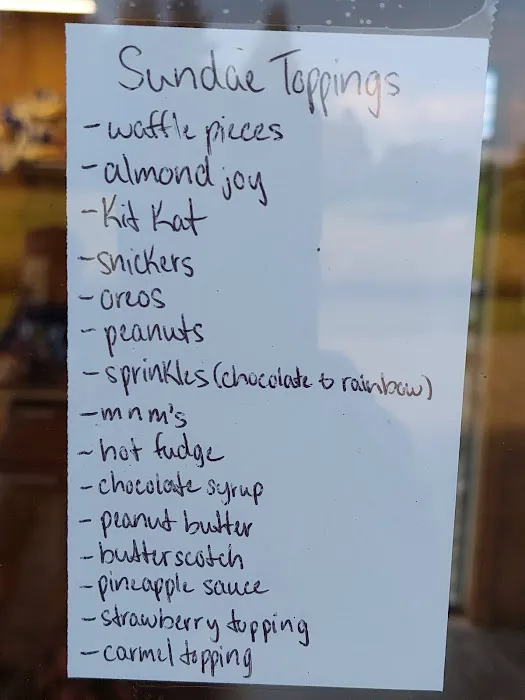 Sundae Toppings
- waffle pieces
- almond joy
- Kit Kat
- snickers
- oreos
- peanuts
- sprinkles (chocolate & rainbow)
- mnm's
- hot fudge
- chocolate syrup
- peanut butter
- butterscotch
- pineapple sauce
- strawberry topping
- carmel topping